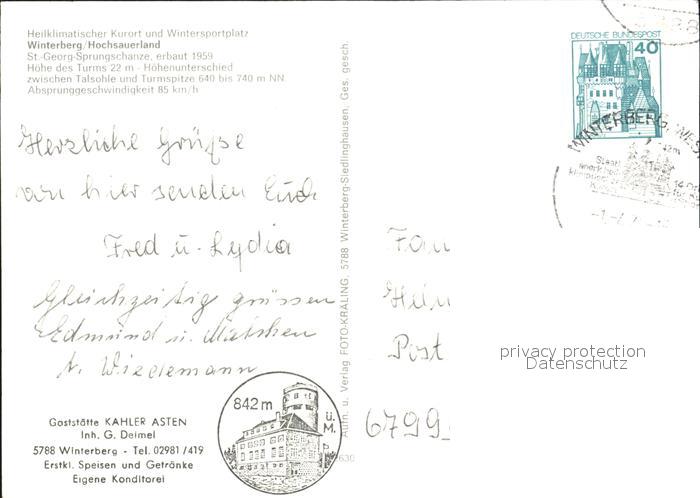 Heilklimatischer Kurort und Wintersportplatz
Winterberg/Hochsauerland
St.-Georg-Sprungschanze, erbaut 1959
Höhe des Turms 22 m - Höhenunterschied
zwischen Talsohle und Turmspitze 640 bis 740 m NN.
Absprunggeschwindigkeit 85 km/h
Herzliche Grüße
von hier senden Euch
Fred u. Lydia
Gleichzeitig grüssen
Edmund u.
Wiedemann
Gaststätte KAHLER ASTEN
Inh. G. Deimel
5788 Winterberg - Tel. 02981/419
Erstkl. Speisen und Getränke
Eigene Konditorei
842 m
ü.
M.
Aufn. u. Verlag FOTO-KRALING, 5788 Winterberg-Siedlinghausen, Ges. gesch.
630
DEUTSCHE BUNDESPOST
40
WINTERBERG, WES
Fam
Hein
Post
6799
privacy protection
Datenschutz